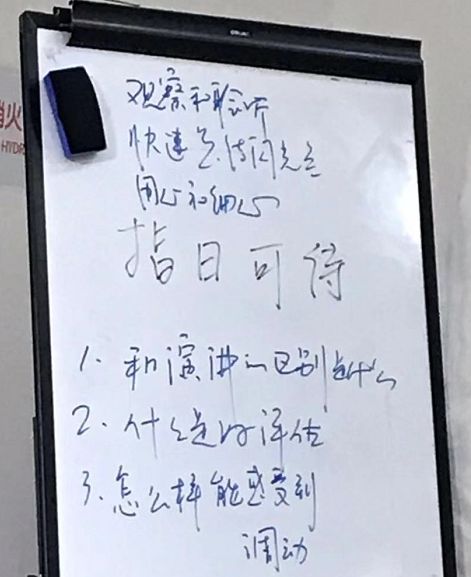 火
HYDR
观察和聆听
快速总结闪光点
用心和细心
指日可待
1. 和演讲的区别是什么
2. 什么是好评估
3. 怎么样能感受到
调动